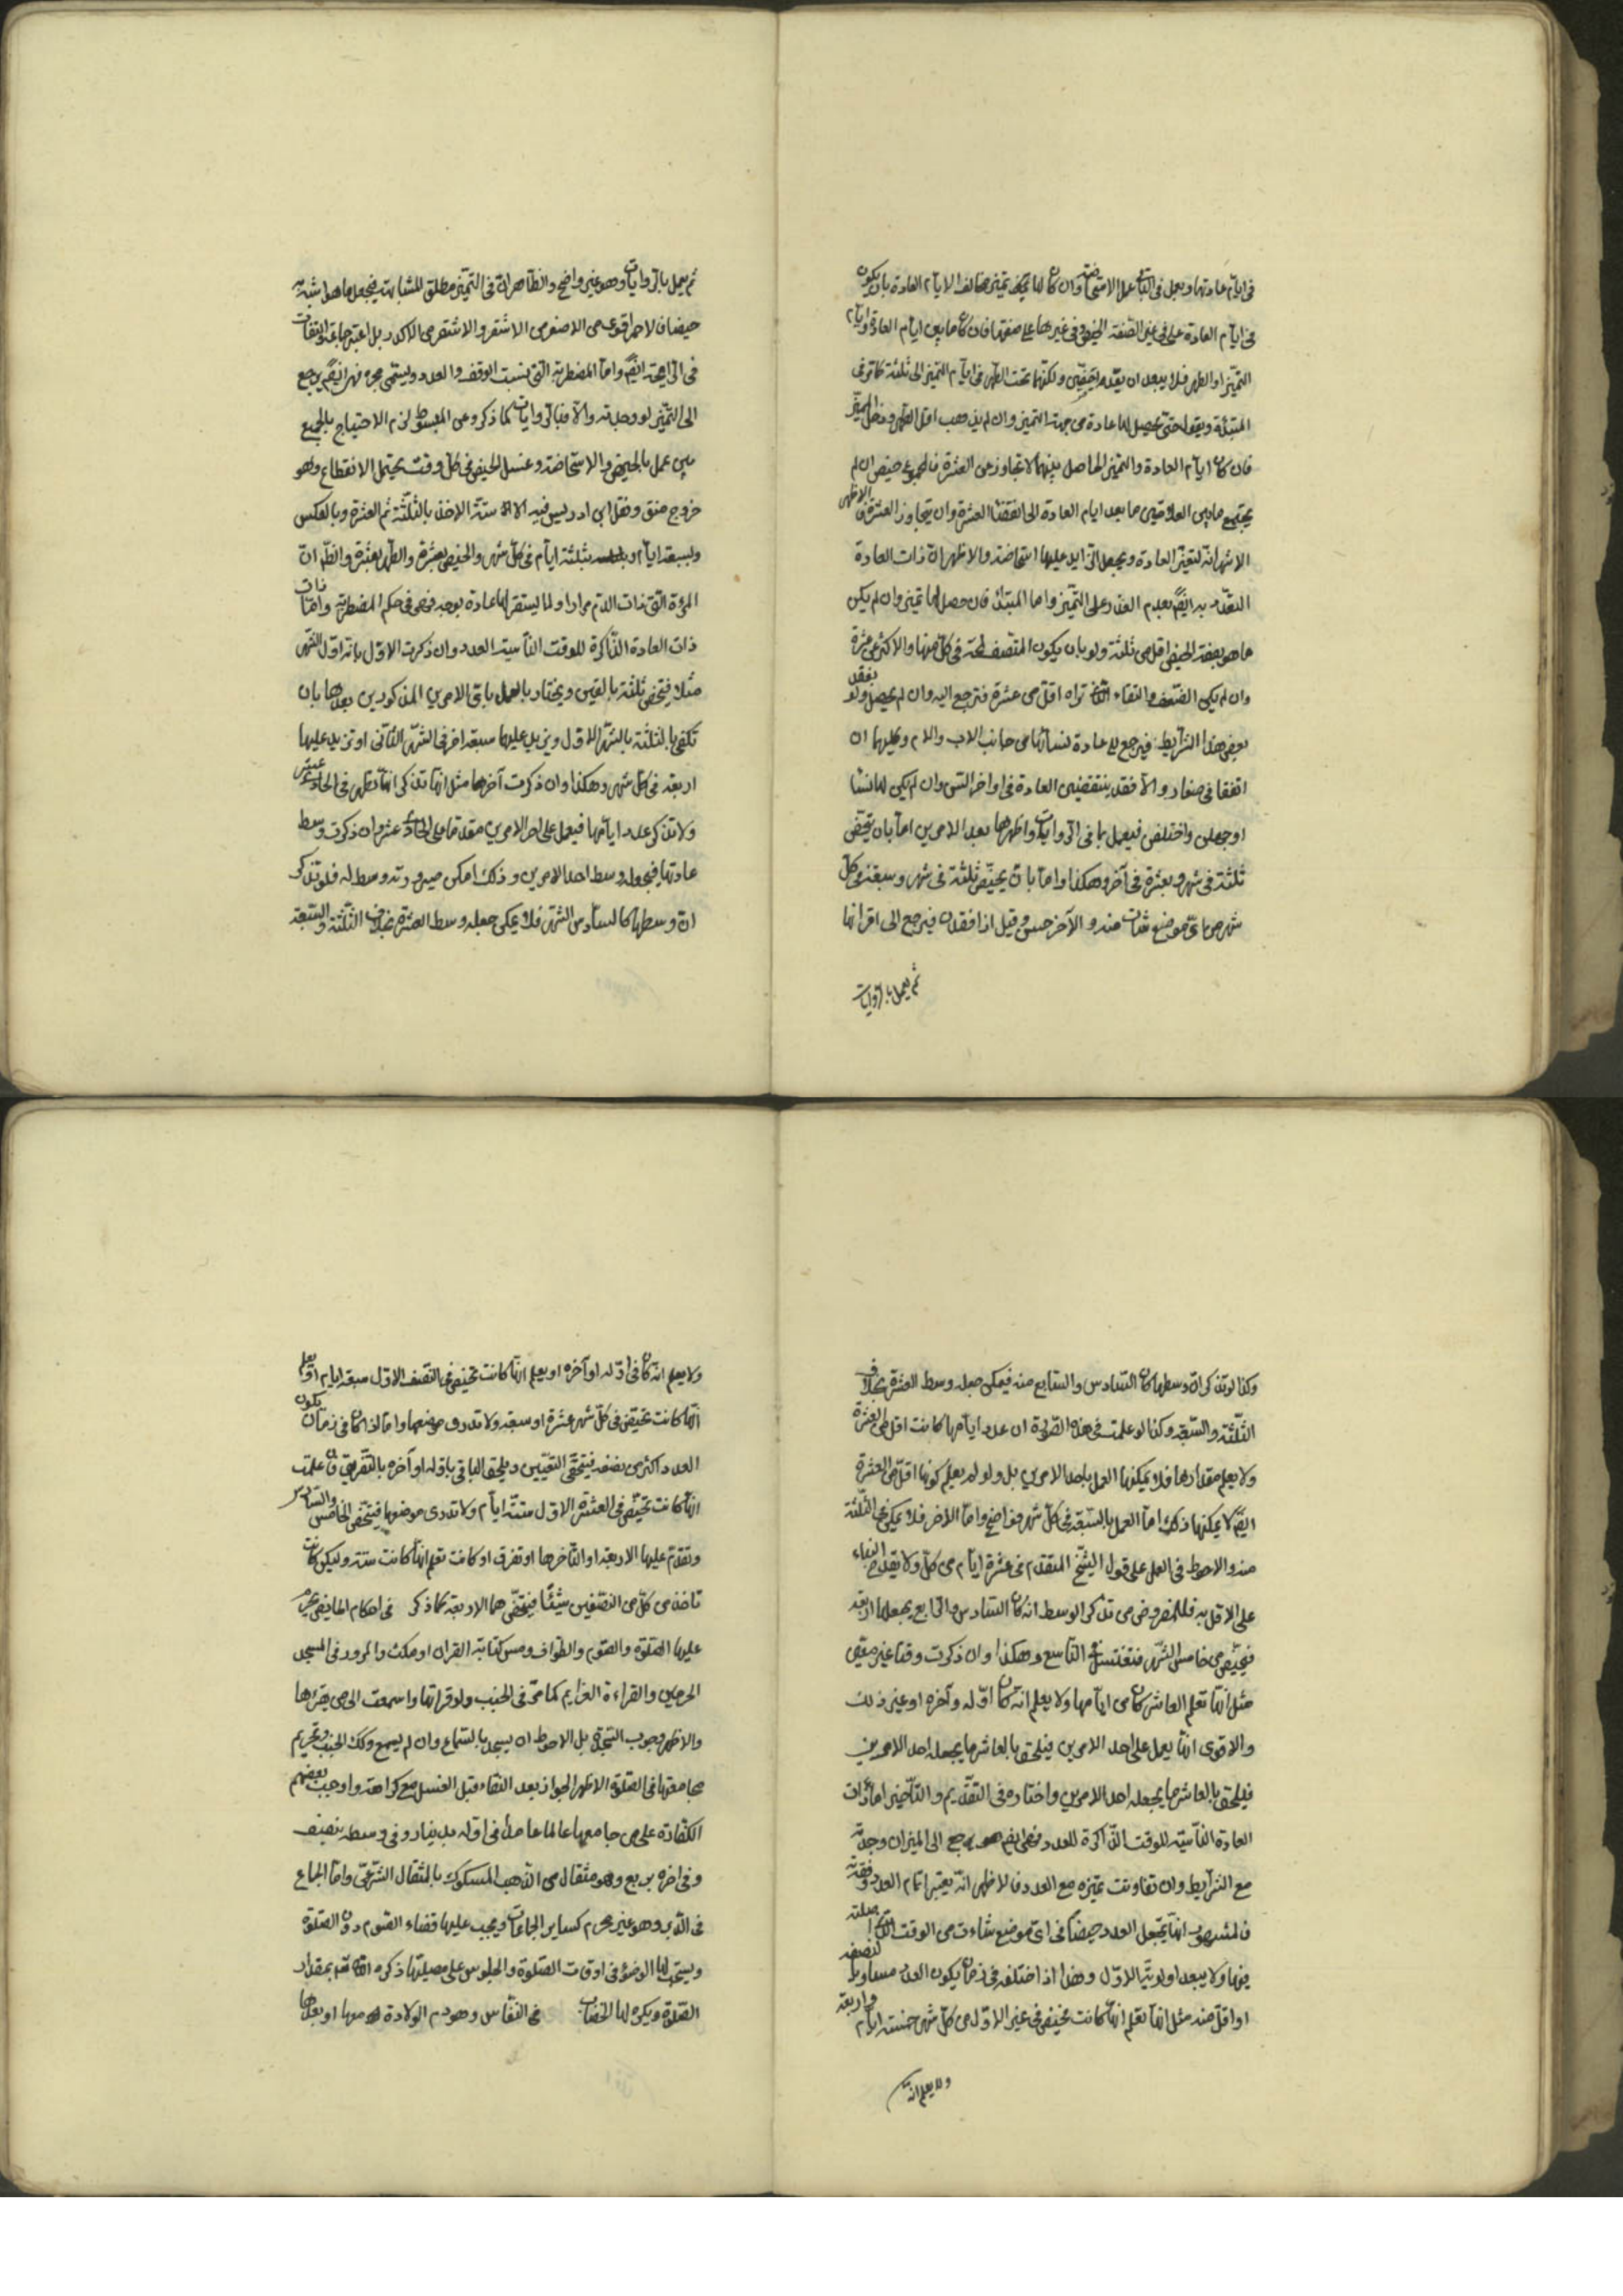 في ايام عادتها وبعمل في الباقي عمل الاستحاضة وان كان لها تميز مخالف لايام العادة بان يكون
في ايام العادة على غير الصفة الحيض وفي غيرها على صفتها فان كان ما بين ايام العادة وايام
التميز اول الطهر فلا يبعد ان يقدم ولكنها تحت الطهر في ايام التميز الى ثلثة كما تر في
المبتدئة ويقوا حتى يحصل لها عادة من جهة التميز وان لم يذهب اقل الطهر ودخل التميز
فان كان ايام العادة والتميز الحاصل بينهما لا يتجاوز عن العشرة فالمجموع حيض ان لم
يجتمع ما بين العلامتين ما بعد ايام العادة الى العشرة وان يتجاوز العشرة فالاظهر
الاشهر انه لتغير العادة ويجعل الزايد عليها استحاضة والاظهر ان ذات العادة
به ايضا بعدم العدد على التميز واما المبتدئة فان حصل لها تميز وان لم يكن
ما هو بصفة الحيض اقل من ثلثة ولو بان يكون المتصف تحته في كل منها والاكثر عن عشرة
وان لم يكن والنقاء تراه اقل من عشرة فترجع اليه وان لم يحصل ولو بفقد
بعض هذا الشرايط فيرجع الى عادة نسائها من جانب الاب والام وكليهما ان
اتفقا في والا فقد العادة في اواخر السن وان لم يكن لها نساء
او جهلن واختلفن فيعمل بما في الروايات واظهرها بعد الامرين اما بان تحيض
ثلثة في شهر وبعشرة في آخر وهكذا واما بان يحيض ثلثة في شهر وسبعة من كل
شهر من اي موضع شاءت منه والآخر حسن وقيل اذا فقدن فيرجع الى اقرانها
ثم يعمل بالروايات
ثم يعمل بالروايات وهو غير واضح والظاهر ان في التميز مطلق المشابهة فيجعل ما هو اشبه به
حيضا فالاحمر اقوى من الاصفر من الاشقر والاشقر من الاكدر بل اعتبر جماعة التفاوت
في الرايحة ايضا واما المضطربة التي نسيت الوقت والعدد وليسمى محيرة فهي ايضا يرجع
الى التميز لو وجدته والا فبالروايات كما ذكر وعن المبسوط لزم الاحتياط بالجمع
بين عمل بالحيض والاستحاضة وغسل الحيض في كل وقت يحتمل الانقطاع وهو
خروج ونقل ابن ادريس فيه الاخذ بالثلثة ثم العشرة وبالعكس
وبسبعة ايام بثلثة ايام في كل شهر والحيض بعشرة والطهر بعشرة والظاهر ان
المرءة التي ذات الدم مرارا ولما ليستقر لها عادة بوجه فهي في حكم المضطربة واما ذات
ذات العادة الذاكرة للوقت الناسية العدد وان ذكرت الاول بانه اول الشهر
مثلا فيتحيض ثلثة باليقين ويختار بالعمل باقي الامرين المذكورين بعدها بان
تكفى بالثلثة بالشهر الاول ويزيد عليها سبعة اخر في الشهر الثاني او تزيد عليها
اربعة في كل شهر وهكذا وان ذكرت آخرها مثل انها تذكر انها تطهر في الحادي عشر
ولا تذكر عدد ايامها فيعمل على احد الامرين مقدما على الحادي عشر وان ذكرت وسط
عادتها فيجعله وسط احد الامرين وذلك امكن صيرورته وسط له فلو تذكر
ان وسطها كالسادس الشهر فلا يمكن جعله وسط العشرة بخلاف الثلثة والسبعة
وكذا لو تذكر ان وسطها كان السادس والسابع منه فيمكن جعله وسط العشرة بخلاف
الثلثة والسبعة وكذا لو علمت في هذه الصورة ان عدد ايامها كانت اقل من العشرة
ولا يعلم مقدارها فلا يمكنها العمل باحد الامرين بل ولو لم يعلم كونها اقل من العشرة
ايضا لا يمكنها ذلك اما العمل بالسبعة في كل شهر فواضح واما الاخر فلا يمكن في الثلثة
منه والاحوط في العمل على قول الشيخ المتقدم في عشرة ايام من كل ولا يقدح البناء
على الاقل به فلا لمفروض من تذكر الوسط انه كان السادس والرابع يجعلها اربعة
فتحيض من خامس الشهر فتغتسل في التاسع وهكذا وان ذكرت وقتا غير معين
مثل انها تعلم العاشر كان من ايامها ولا يعلم انه كان اوله وآخره او غير ذلك
والاقوى انها يعمل على احد الامرين فيلحق بالعاشر ما يجعله احد الامرين
فيلحق بالعاشر ما يجعله احد الامرين واختاره في التقديم والتأخير اما ذات
العادة الناسية للوقت الذاكرة للعدد فهي ايضا يرجع الى الميزان وجدته
مع الشرايط وان تفاوتت تميزه مع العدد فالاظهر انه يعتبر اتمام العدد وفقدته
فالمشهور انها يجعل العدد حيضا في اي موضع شاءت من الوقت
فيها ولا يبعد اولوية الاول وهذا اذا اختلفه في زمان يكون العدد مساويا لنصفه
او اقل منه مثل انها تعلم انها كانت تحيض في غير الاول من كل شهر خمسة ايام واربعة
ولا يعلم انه
ولا يعلم انه كان في اوله او آخره او يعلم انها كانت تحيض في النصف الاول سبعة ايام او يعلم
انها كانت تحيض في كل شهر عشرة او سبعة ولا تدري موضعها واما اذا كان في زمان يكون
العدد اكثر من نصفه فيتحقق التعيين ويلحق الباقي باوله او آخره بالتفريق فان علمت
انها كانت تحيض في العشرة الاول ستة ايام ولا تدري موضعها فيتحيض الخامس والسادس
وتقدم عليها الاربعة او التأخرها او تفرق او كانت تعلم انها كانت ستة وليكن كانت
تاخذ من كل من النصفين شيئا فيتحيض هما الاربعة كما ذكر في احكام الحايض يحرم
عليها الصلوة والصوم والطواف ومس كتابة القران او مكث والمرور في المسجد
الحرمين والقراءة العزايم كما مر في الجنب ولو قراتها واسمعت الى من يقرءها
والاظهر وجوب السجدة بل الاحوط ان يسجد بالسماع وان لم يسمع وكك الجنب وتحريم
مجامعتها في الصلوة الاظهر الجواز بعد النقاء قبل الغسل مع كراهة واوجب بعضهم
الكفارة على من جامعها عالما عامدا في اوله بدينار وفي وسطه بنصف
وفي اخره بربع وهو مثقال من الذهب المسكوك بالمثقال الشرعي واما الجماع
في الدبر وهو غير محرم كساير الجماعات ويجب عليها قضاء الصوم دون الصلوة
ويستحب لها الوضؤ في اوقات الصلوة والجلوس على مصليها ذكره بمقدار
الصلوة ويكره لها الخضاب في النفاس وهو دم الولادة معها او بعدها